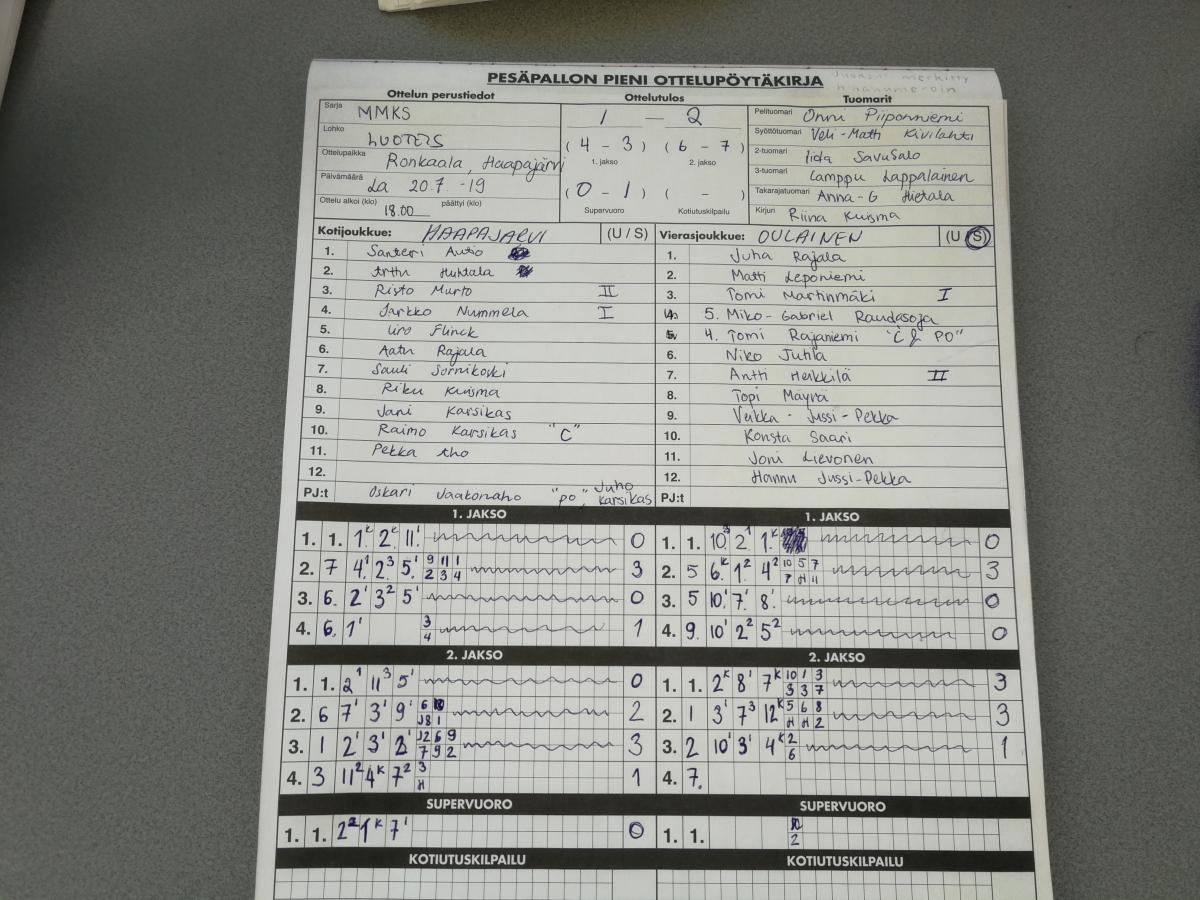 PESÄPALLON PIENI OTTELUPÖYTÄKIRJA
Ottelun perustiedot Ottelutulos Tuomarit
Sarja MMKS
Lohko LUOTERS
Ottelupaikka Ronkaala, Haapajärvi
Päivämäärä La 20.7. -19
Ottelu alkoi (klo) 18.00 päättyi (klo)
1 — 2
( 4 - 3 ) ( 6 - 7 )
1. jakso 2. jakso
( 0 - 1 ) ( - )
Supervuoro Kotiutuskilpailu
Pelituomari Onni Piiponniemi
Syöttötuomari Veli-Matti Kivilahti
2-tuomari Iida Savusalo
3-tuomari Lamppu Lappalainen
Takarajatuomari Anna-G Hietala
Kirjuri Riina Kuisma
Kotijoukkue: HAAPAJARVI (U / S)
1. Santeri Autio
2. Arttu Huhtala
3. Risto Murto II
4. Jarkko Nummela I
5. Uro Flinck
6. Aatu Rajala
7. Sauli Sornikoski
8. Riku Kuisma
9. Jani Karsikas
10. Raimo Karsikas "C"
11. Pekka Aho
12.
PJ:t Oskari Jaakonaho "PO", Juho Karsikas
Vierasjoukkue: OULAINEN (U S)
1. Juha Rajala
2. Matti Leponiemi
3. Tomi Martinmäki I
4. 5. Miko-Gabriel Raudasoja
5. 4. Tomi Rajaniemi "C & PO"
6. Niko Jutila
7. Antti Heikkilä II
8. Topi Mäyrä
9. Veikka-Jussi-Pekka
10. Konsta Saari
11. Joni Lievonen
12. Hannu Jussi-Pekka
PJ:t
1. JAKSO
1. 1. 1K 2K 11' 0
2. 7 4' 2³ 5' 9 11 1 3
2 3 4
3. 6. 2' 3² 5' 0
4. 6. 1' 3 1
4
1. JAKSO
1. 1. 10³ 2¹ 1K 0
2. 5 6K 1² 4² 10 5 7 3
7 H 11
3. 5 10' 7' 8' 0
4. 9. 10' 2² 5² 0
2. JAKSO
1. 1. 2¹ 11³ 5' 0
2. 6 7' 3' 9' 6 2
8 1
3. 1 2' 3' 12 6 9 3
7 9 2
4. 3 11² 4K 7² 3 1
H
2. JAKSO
1. 1. 2K 8' 7K 10 1 3 3
3 3 7
2. 1 3' 7³ 12K 5 6 8 3
H H 2
3. 2 10' 3' 4K 2 1
6
4. 7.
SUPERVUORO
1. 1. 2² 1K 7' 0
SUPERVUORO
1. 1. 2
KOTIUTUSKILPAILU KOTIUTUSKILPAILU